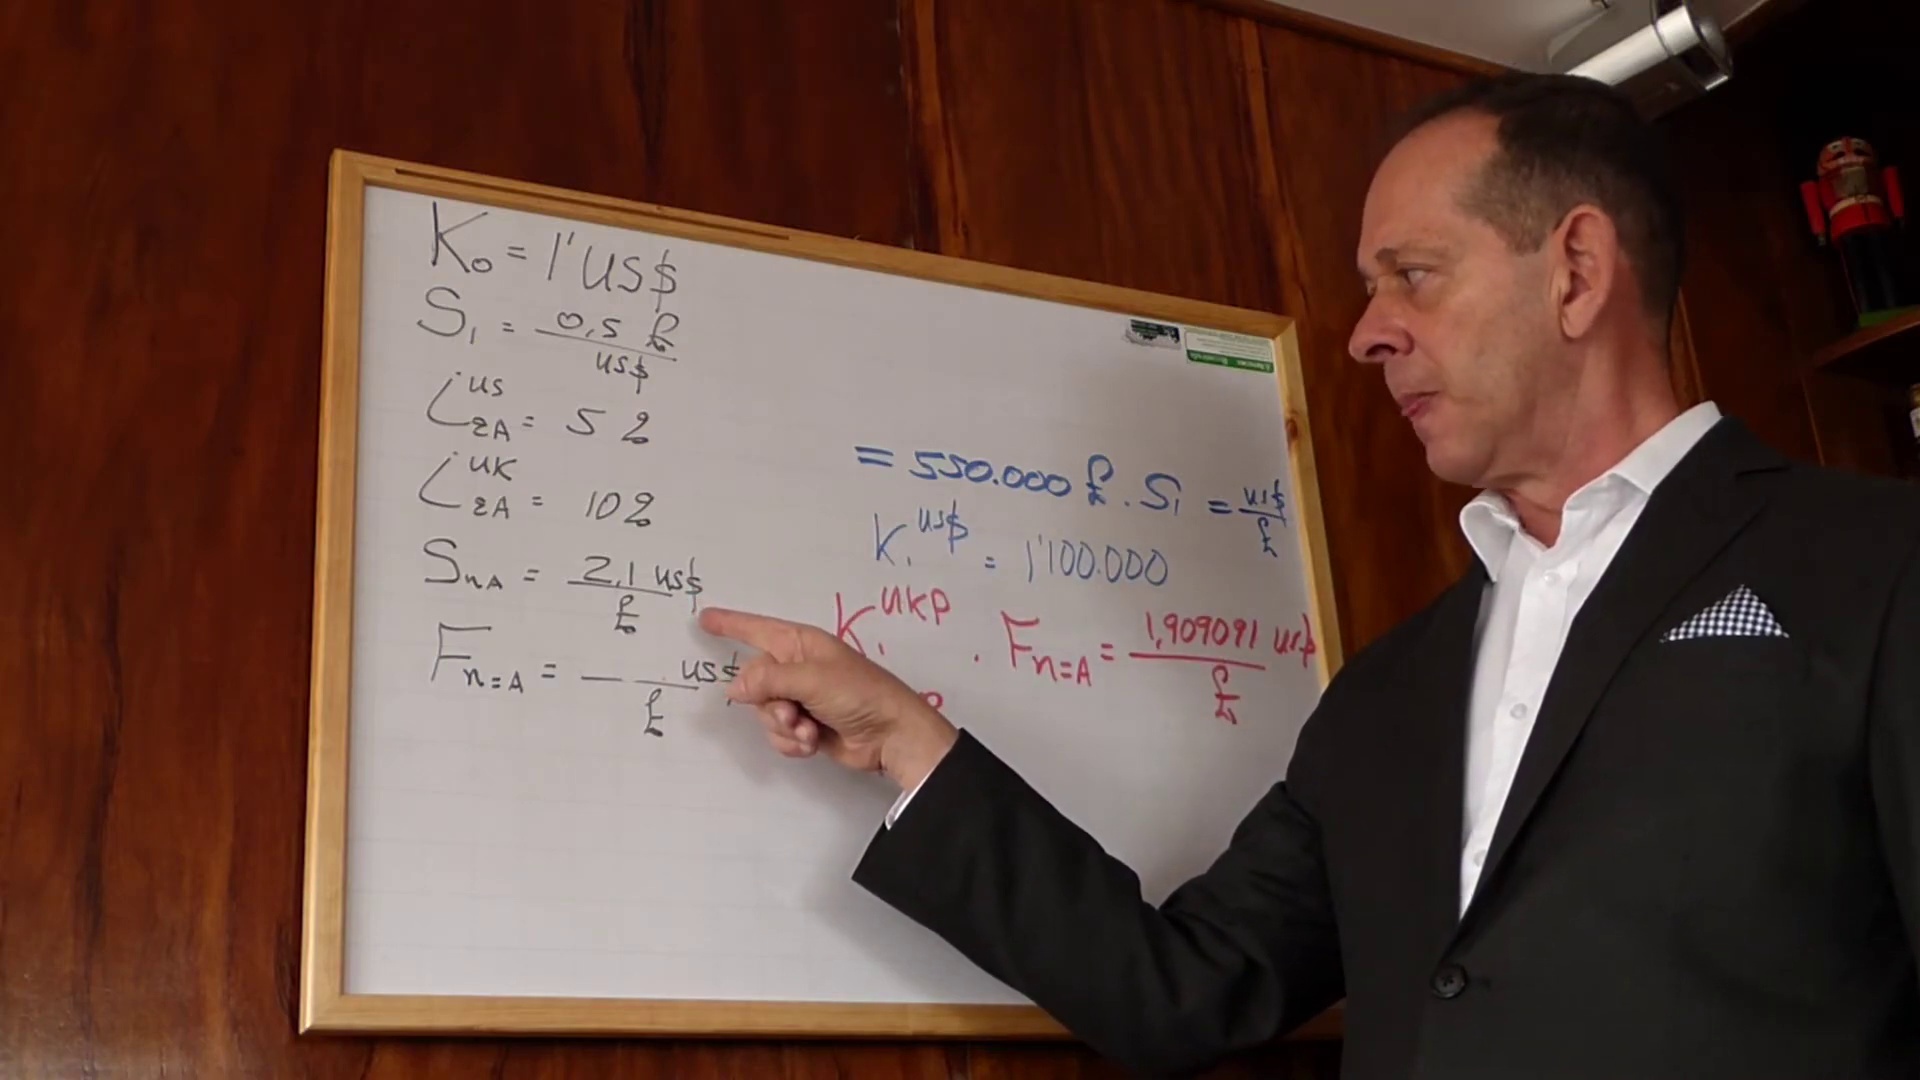 K₀ = 1' US$
S₁ = 0,5 £ / US$
i US ZA = 5 %
i UK ZA = 10 %
S nA = 2,1 US$ / £
F n=A = __ US$ / £
= 550.000 £ . S₁ = US$ / £
K₁ US$ = 1'100.000
K₁ UKP . F n=A = 1,909091 US$ / £